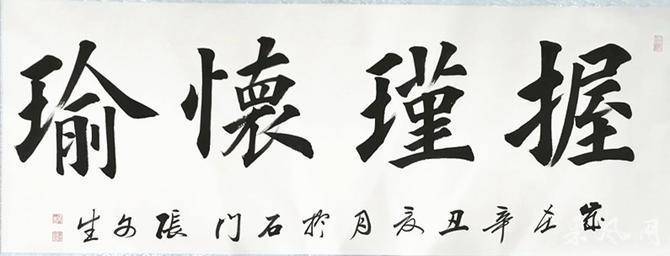 握瑾懷瑜
歲在辛丑夏月於石门張文生